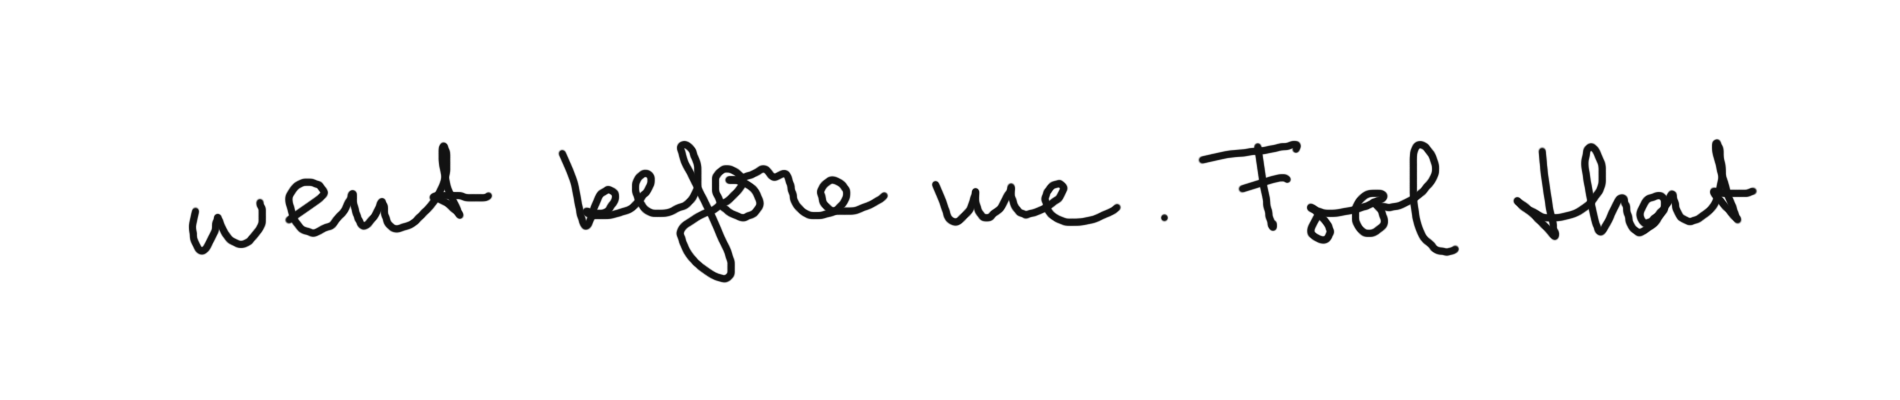 went before me. Fool that